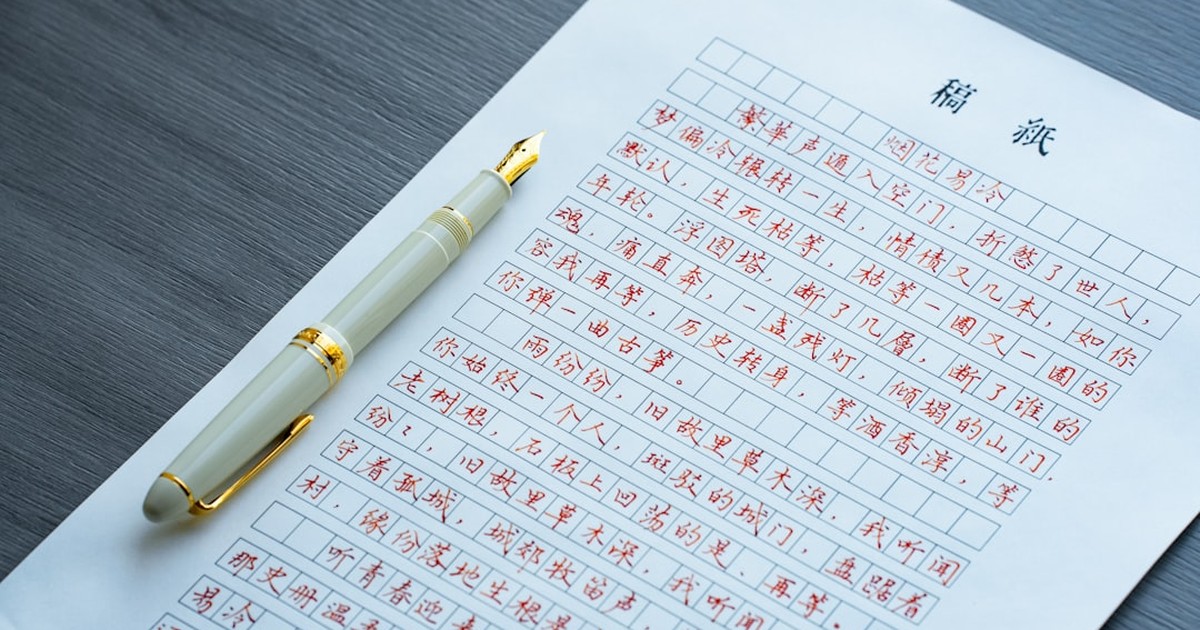 稿紙
烟花易冷
繁華声遁入空门,折煞了世人,
梦偏冷辗转一生,情债又几本,如你
默认,生死枯等,枯等一圈又一圈的
年轮。浮图塔,断了几層,断了谁的
魂,痛直奔,一盏残灯,倾塌的山门,
容我再等,历史转身,等酒香淳,等
你弹一曲古筝。
雨纷纷,旧故里草木深,我听闻
你始终一个人,斑驳的城门,盘踞着
老树根,石板上回荡的是、再等。
纷〻,旧故里草木深,我听闻
守着孤城,城郊牧笛声,
村,缘份落地生根是
听青春迎
那史册温
易冷